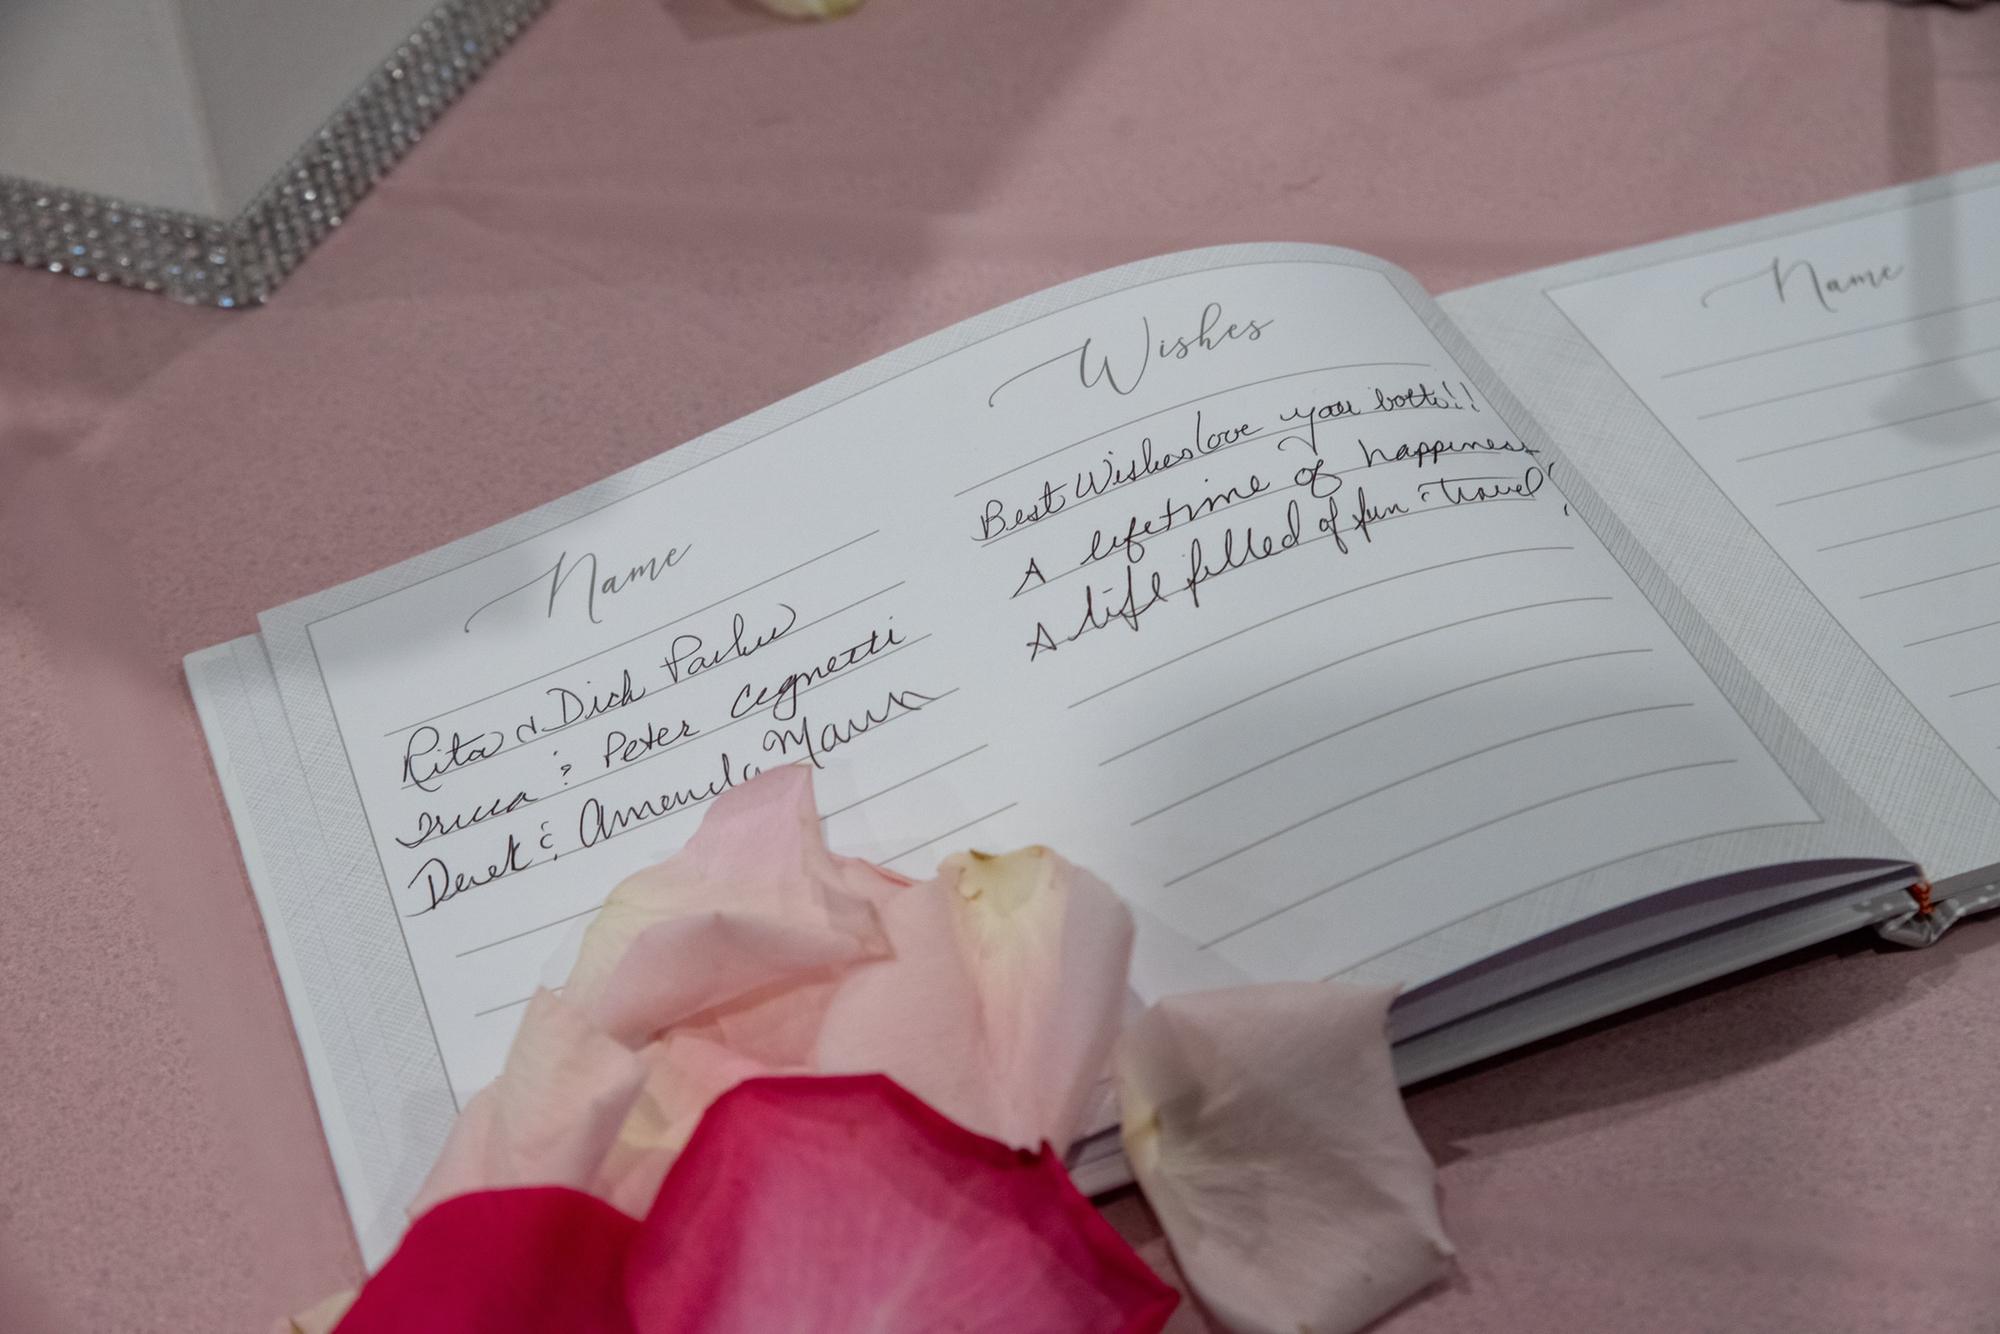 Name
Rita & Dick Parker
& Peter Cegnetti
Derek & Amanda Mann
Wishes
Best Wishes love you both!!
A lifetime of happiness
A life filled of fun & travel!
Name